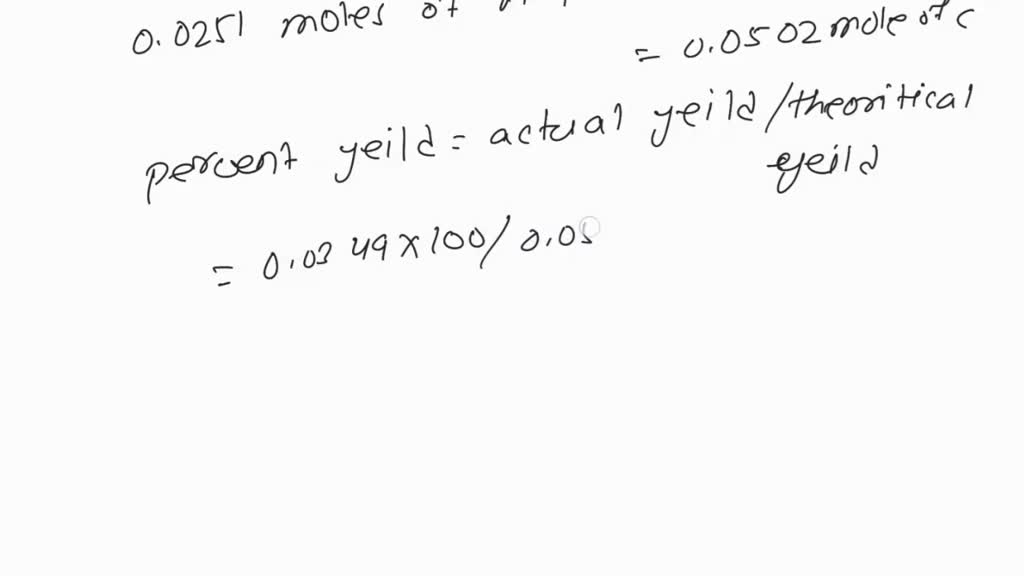 0.0251 moles of
= 0.0502 mole of c
percent yeild = actual yeild / theoritical
yeild
= 0.0349 x 100 / 0.05